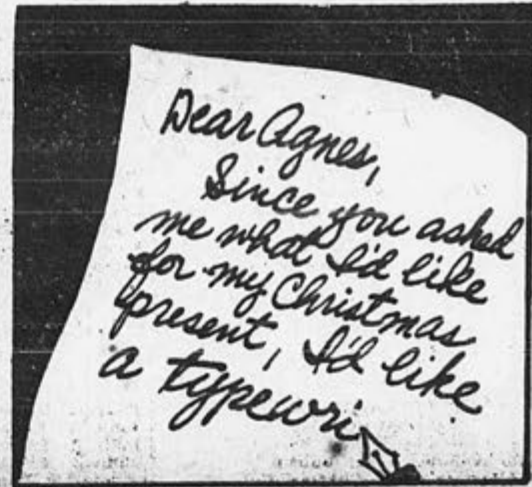 Dear Agnes,
Since you asked
me what I'd like
for my Christmas
present, I'd like
a typewri